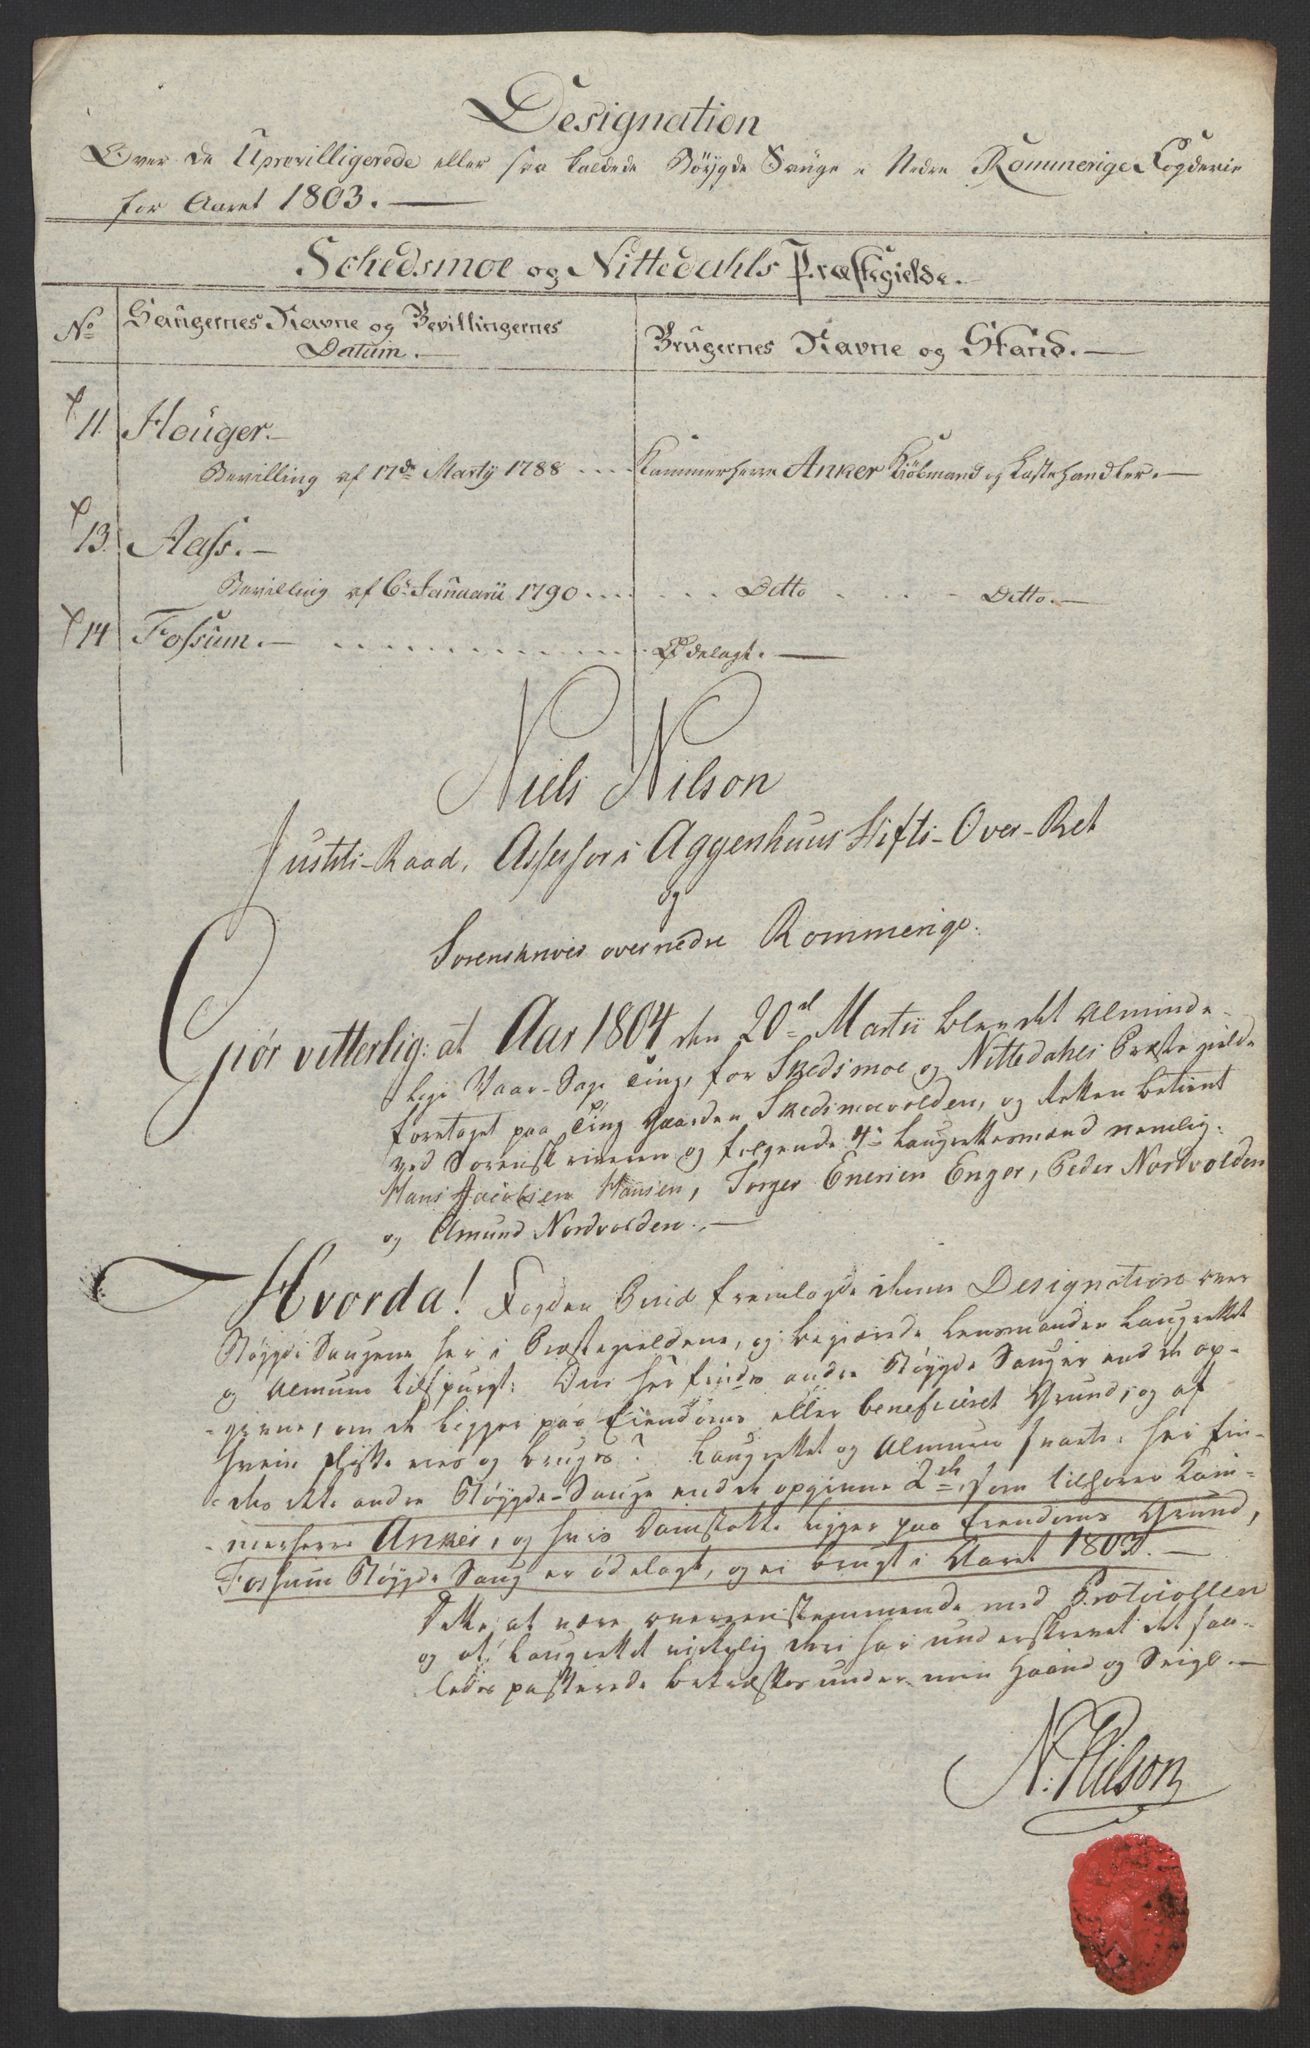 Designation
Over de Uprevilligerede eller saa kaldede Böygde Sauge i Nedre Rommerige Fogderie
for Aaret 1803.
Schedsmoe og Nittedahls Præstegielde.
No Saugernes Navne og Bevillingernes Datum. Brugernes Navne og Stand.
11. Houger.
Bevilling af 17de Martÿ 1788 Kammerherre Anker Kiöbmand og Lastehandler.
13. Aass.
Bevilling af 6t Januarii 1790 Ditto Ditto.
14 Fossum. Ødelagt.
Niels Nilson
Justits-Raad, Assessor i Aggershuus Stifts-Over-Ret
og
Sorenskriver over nedre Rommerige.
Giör vitterlig: at Aar 1804 den 20de Martii blev det Alminde-
lige Vaar-Sage Ting, for Skedsmoe og Nittedahls Præstegielde
foretaget paa Ting Gaarden Skedsmovolden, og Retten betient
ved Sorenskriveren og følgende 4re Laugrettesmænd nemlig:
Hans Jacobsen Hansen, Torger Enersen Enger, Peder Nordvolden
og Amund Nordvolden.
Hvorda! Fogden fremlagde denne Designation over
Bøygde Saugene her i Præstegieldene, og begiærede Lensmanden Laugrettet
og Almue tilspurgt: Om her findes andre Bøygde Sauger end de op-
givne, om de ligger paa Eiendoms eller beneficeret Grund, og af
hvem disse eies og bruges? Laugrettet og Almuen svarte: her fin-
des ikke andre Bøygde-Sauge end de opgivne 2de, som tilhører Kam-
merherre Anker, og hvis Damstokke ligger paa Eiendoms Grund,
Fossum Bøygde Saug er ødelagt, og ei brugt i Aaret 1803.
Dette at være overeenstemmende med Protocollen
og at Laugrettet virkelig den har underskrevet det saa-
ledes passerede bekræftes under min Haand og Seigl.
N. Nilson